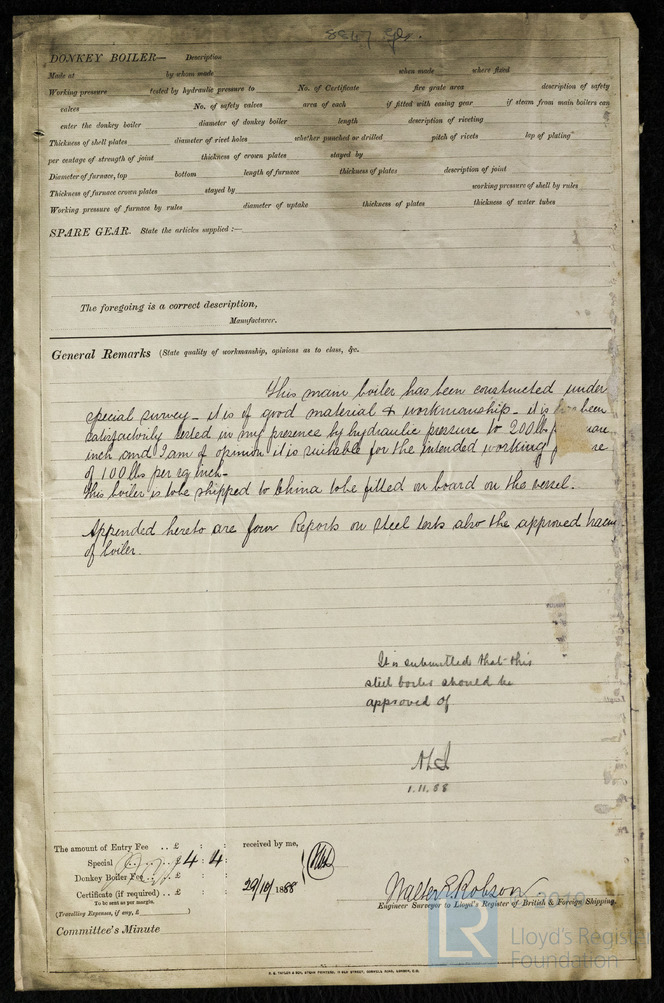 8847 Gls.
DONKEY BOILER— Description
Made at by whom made when made where fixed
Working pressure tested by hydraulic pressure to No. of Certificate fire grate area description of safety
valves No. of safety valves area of each if fitted with easing gear if steam from main boilers can
enter the donkey boiler diameter of donkey boiler length description of riveting
Thickness of shell plates diameter of rivet holes whether punched or drilled pitch of rivets lap of plating
per centage of strength of joint thickness of crown plates stayed by
Diameter of furnace, top bottom length of furnace thickness of plates description of joint
Thickness of furnace crown plates stayed by working pressure of shell by rules
Working pressure of furnace by rules diameter of uptake thickness of plates thickness of water tubes
SPARE GEAR. State the articles supplied :—
The foregoing is a correct description,
Manufacturer.
General Remarks (State quality of workmanship, opinions as to class, &c.
This main boiler has been constructed under
special survey - it is of good material & workmanship - it is has been
satisfactorily tested in my presence by hydraulic pressure to 200 lbs
inch and I am of opinion it is suitable for the intended working
of 100 lbs per sq inch -
This boiler is to be shipped to China to be fitted on board on the vessel.
Appended hereto are four Reports on steel tests also the approved tracing
of boiler.
It is submitted that this
steel boiler should be
approved of
1.11.88
The amount of Entry Fee .. £ : : received by me,
Special .. £ 4 : 4 :
Donkey Boiler Fee .. £ : :
Certificate (if required) .. £ : : 29/10/1888
To be sent as per margin.
(Travelling Expenses, if any, £ )
Walter E. Robson
Engineer Surveyor to Lloyd's Register of British & Foreign Shipping.
Committee's Minute
LR
Lloyd's Register
Foundation